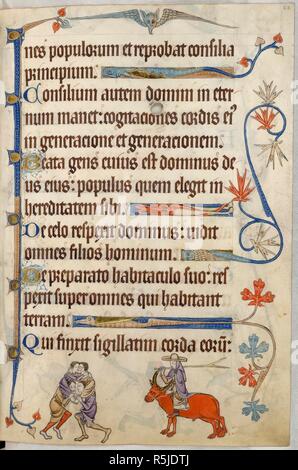 nes populorum et reprobat consilia
principium.
Consilium autem domini in eter
num manet: cogitaciones cordis eius
in generacione et generacionem.
Beata gens cuius est dominus de
us eius: populus quem elegit in
hereditatem sibi.
De celo respexit dominus: vidit
omnes filios hominum.
De preparato habitaculo suo: res
pexit super omnes qui habitant
terram.
Qui finxit sigillatim corda eorum:
alamy